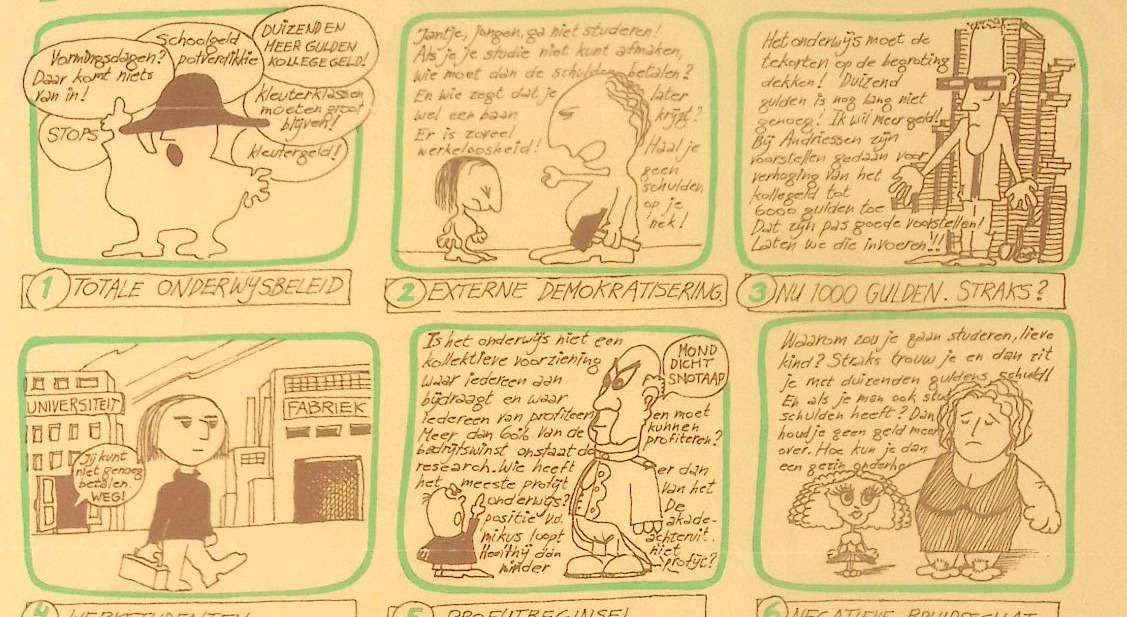 Vormingsdagen?
Daar komt niets
van in!
Schoolgeld
potverdikkie
DUIZEND EN
MEER GULDEN
KOLLEGEGELD!
kleuterklassen
moeten groot
blijven!
kleutergeld!
STOPS
1 TOTALE ONDERWIJSBELEID
Jantje, jongen, ga niet studeren!
Als je je studie niet kunt afmaken,
wie moet dan de schulden betalen?
En wie zegt dat je later
wel een baan krijgt?
Er is zoveel
werkeloosheid! Haal je
geen
schulden
op je
nek!
2 EXTERNE DEMOKRATISERING
Het onderwijs moet de
tekorten op de begroting
dekken! Duizend
gulden is nog lang niet
genoeg! Ik wil meer geld!
Bij Andriessen zijn
voorstellen gedaan voor
verhoging van het
kollegeld tot
6000 gulden toe
Dat zijn pas goede voorstellen!
Laten we die invoeren!!!
3 NU 1000 GULDEN. STRAKS?
UNIVERSITEIT
FABRIEK
Jij kunt
niet genoeg
betalen.
WEG!
4 WERKSTUDENTEN
Is het onderwijs niet een
kollektieve voorziening
waar iedereen aan
bijdraagt en waar
iedereen van profiteert en moet
Meer dan 60% van de kunnen
bedrijfswinst onstaat de profiteren?
research. Wie heeft er dan
het meeste profijt van het
onderwijs? De
positie v.d. akade-
mikus loopt achteruit.
Heeft hij dan niet
minder profijt?
MOND
DICHT
SNOTAAP
5 PROFIJTBEGINSEL
Waarom zou je gaan studeren, lieve
kind? Straks trouw je en dan zit
je met duizenden guldens schuld!
En als je man ook stu
schulden heeft? Dan
houd je geen geld meer
over. Hoe kun je dan
een gezin onderho
6 NEGATIEVE BRUIDSCHAT